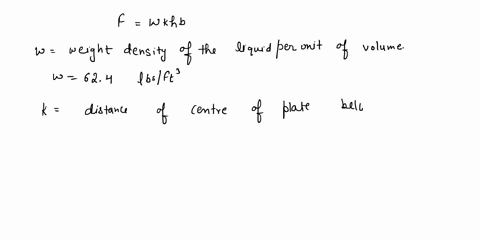 F = wkhb
w = weight density of the liquid per unit of volume.
w = 62.4 lbs/ft³
k = distance of centre of plate bel